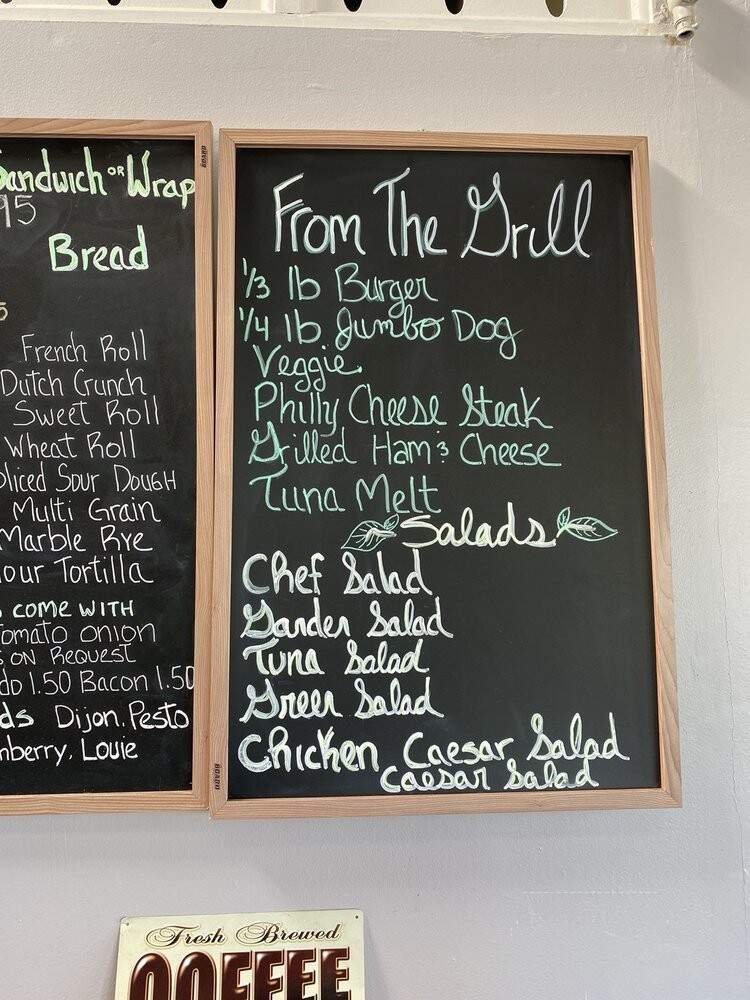 Sandwich OR Wrap
95
Bread
5
French Roll
Dutch Crunch
Sweet Roll
Wheat Roll
Sliced Sour Dough
Multi Grain
Marble Rye
lour Tortilla
COME WITH
Tomato onion
ON REQUEST
do 1.50 Bacon 1.50
ds Dijon. Pesto
nberry, Louie
From The Grill
1/3 lb Burger
1/4 lb Jumbo Dog
Veggie
Philly Cheese Steak
Grilled Ham & Cheese
Tuna Melt
Salads
Chef Salad
Garden Salad
Tuna Salad
Green Salad
Chicken Caesar Salad
Caesar Salad
Fresh Brewed
COFFEE